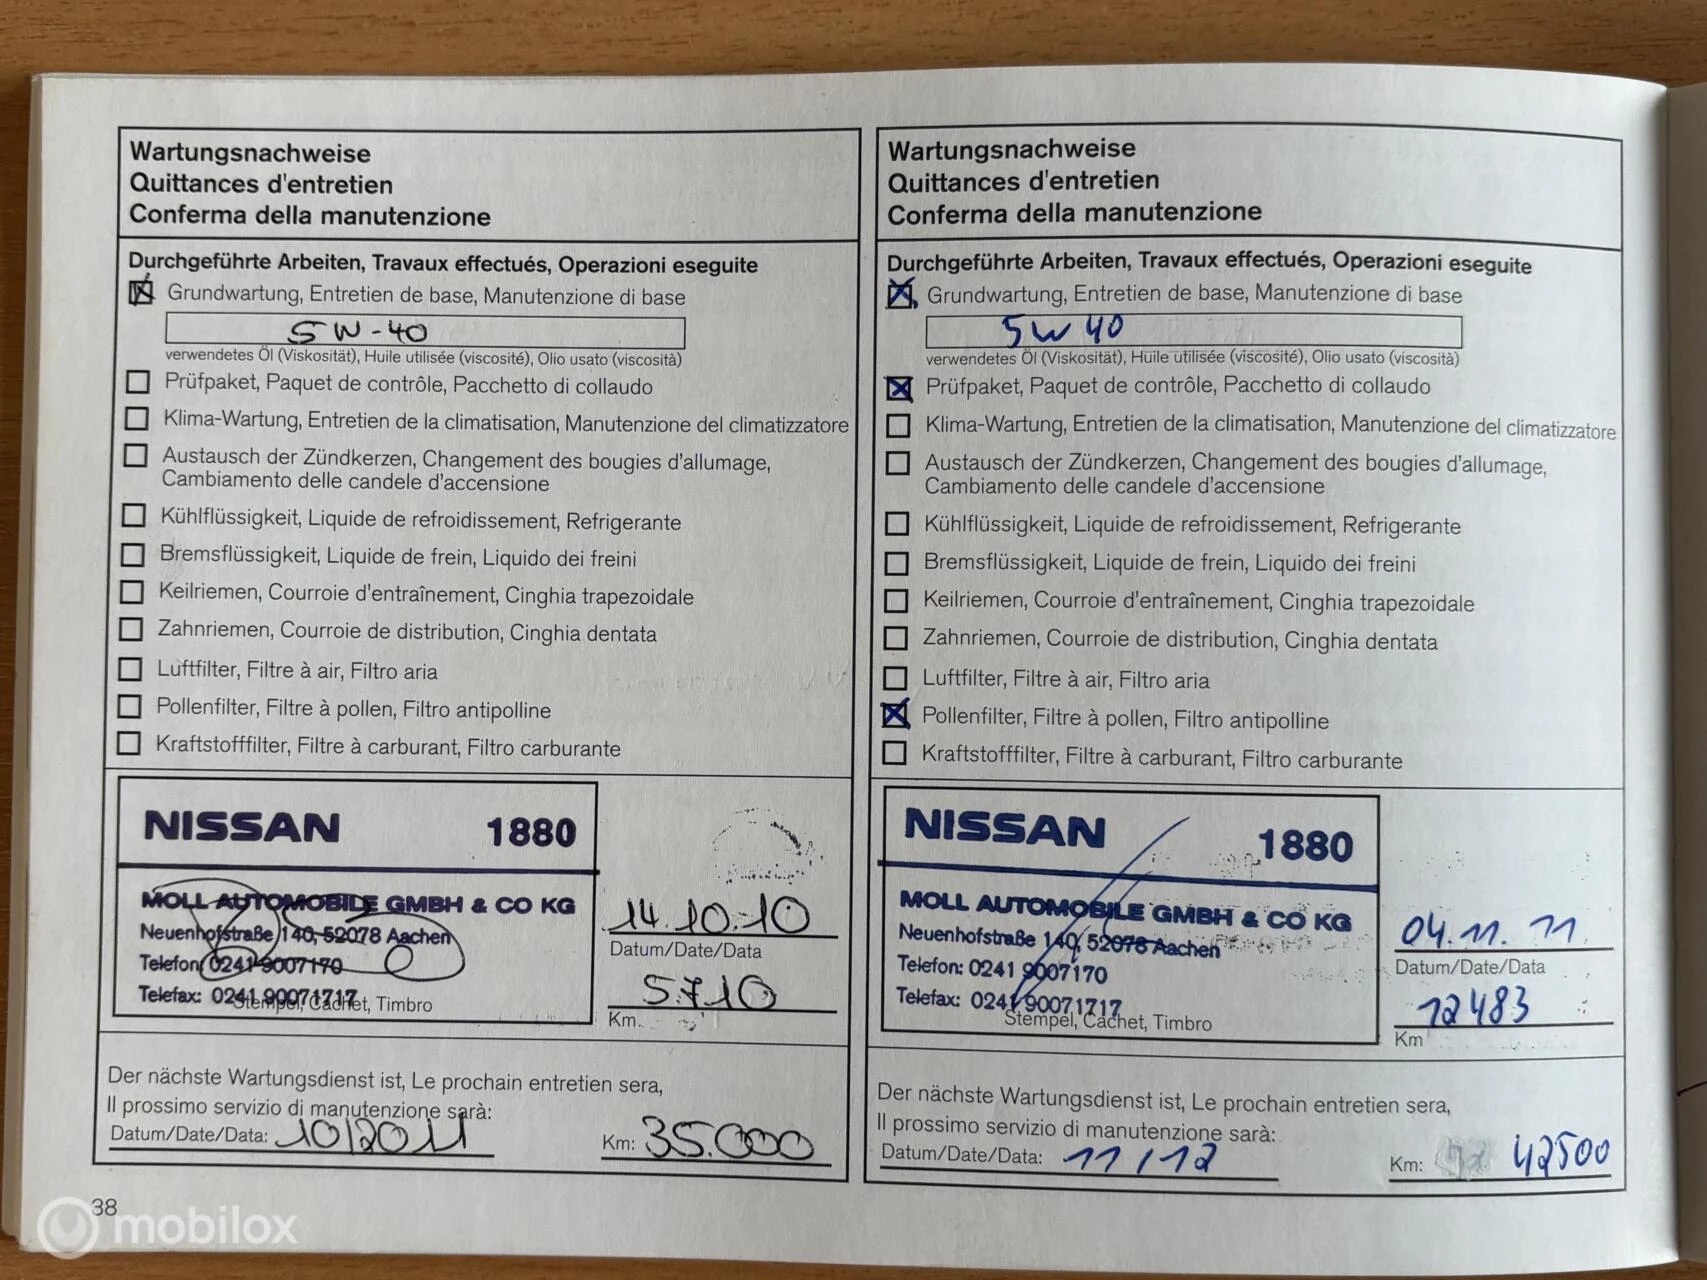 Wartungsnachweise
Quittances d'entretien
Conferma della manutenzione
Durchgeführte Arbeiten, Travaux effectués, Operazioni eseguite
Grundwartung, Entretien de base, Manutenzione di base
5W-40
verwendetes Öl (Viskosität), Huile utilisée (viscosité), Olio usato (viscosità)
Prüfpaket, Paquet de contrôle, Pacchetto di collaudo
Klima-Wartung, Entretien de la climatisation, Manutenzione del climatizzatore
Austausch der Zündkerzen, Changement des bougies d'allumage,
Cambiamento delle candele d'accensione
Kühlflüssigkeit, Liquide de refroidissement, Refrigerante
Bremsflüssigkeit, Liquide de frein, Liquido dei freini
Keilriemen, Courroie d'entraînement, Cinghia trapezoidale
Zahnriemen, Courroie de distribution, Cinghia dentata
Luftfilter, Filtre à air, Filtro aria
Pollenfilter, Filtre à pollen, Filtro antipolline
Kraftstofffilter, Filtre à carburant, Filtro carburante
NISSAN 1880
MOLL AUTOMOBILE GMBH & CO KG
Neuenhofstraße 140, 52078 Aachen
Telefon: 0241 9007170
Telefax: 0241 90071717
Stempel, Cachet, Timbro
14.10.10
Datum/Date/Data
5710
Km
Der nächste Wartungsdienst ist, Le prochain entretien sera,
Il prossimo servizio di manutenzione sarà:
Datum/Date/Data: 10/2011 Km: 35.000
38
Wartungsnachweise
Quittances d'entretien
Conferma della manutenzione
Durchgeführte Arbeiten, Travaux effectués, Operazioni eseguite
Grundwartung, Entretien de base, Manutenzione di base
5W40
verwendetes Öl (Viskosität), Huile utilisée (viscosité), Olio usato (viscosità)
Prüfpaket, Paquet de contrôle, Pacchetto di collaudo
Klima-Wartung, Entretien de la climatisation, Manutenzione del climatizzatore
Austausch der Zündkerzen, Changement des bougies d'allumage,
Cambiamento delle candele d'accensione
Kühlflüssigkeit, Liquide de refroidissement, Refrigerante
Bremsflüssigkeit, Liquide de frein, Liquido dei freini
Keilriemen, Courroie d'entraînement, Cinghia trapezoidale
Zahnriemen, Courroie de distribution, Cinghia dentata
Luftfilter, Filtre à air, Filtro aria
Pollenfilter, Filtre à pollen, Filtro antipolline
Kraftstofffilter, Filtre à carburant, Filtro carburante
NISSAN 1880
MOLL AUTOMOBILE GMBH & CO KG
Neuenhofstraße 140, 52078 Aachen
Telefon: 0241 9007170
Telefax: 0241 90071717
Stempel, Cachet, Timbro
04.11.11
Datum/Date/Data
12483
Km
Der nächste Wartungsdienst ist, Le prochain entretien sera,
Il prossimo servizio di manutenzione sarà:
Datum/Date/Data: 11/12 Km: 42500
mobilox